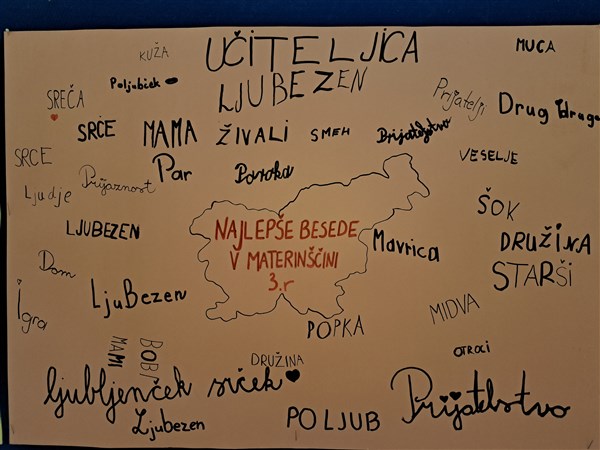 UČITELJICA
LJUBEZEN
KUŽA
MUCA
Poljubček
SREČA
Prijatelji
Drug druga
SRČE
MAMA
ŽIVALI
SMEH
Prijateljstvo
SRCE
Par
Poroka
VESELJE
Ljudje
Prijaznost
ŠOK
LJUBEZEN
NAJLEPŠE BESEDE
V MATERINŠČINI
3.r
Mavrica
DRUŽINA
Dom
STARŠi
LjuBezen
Igra
MIDVA
POPKA
MAMI
BOBI
DRUŽINA
OTROCI
ljubljenček srček
Prijatelstvo
Ljubezen
POLJUB